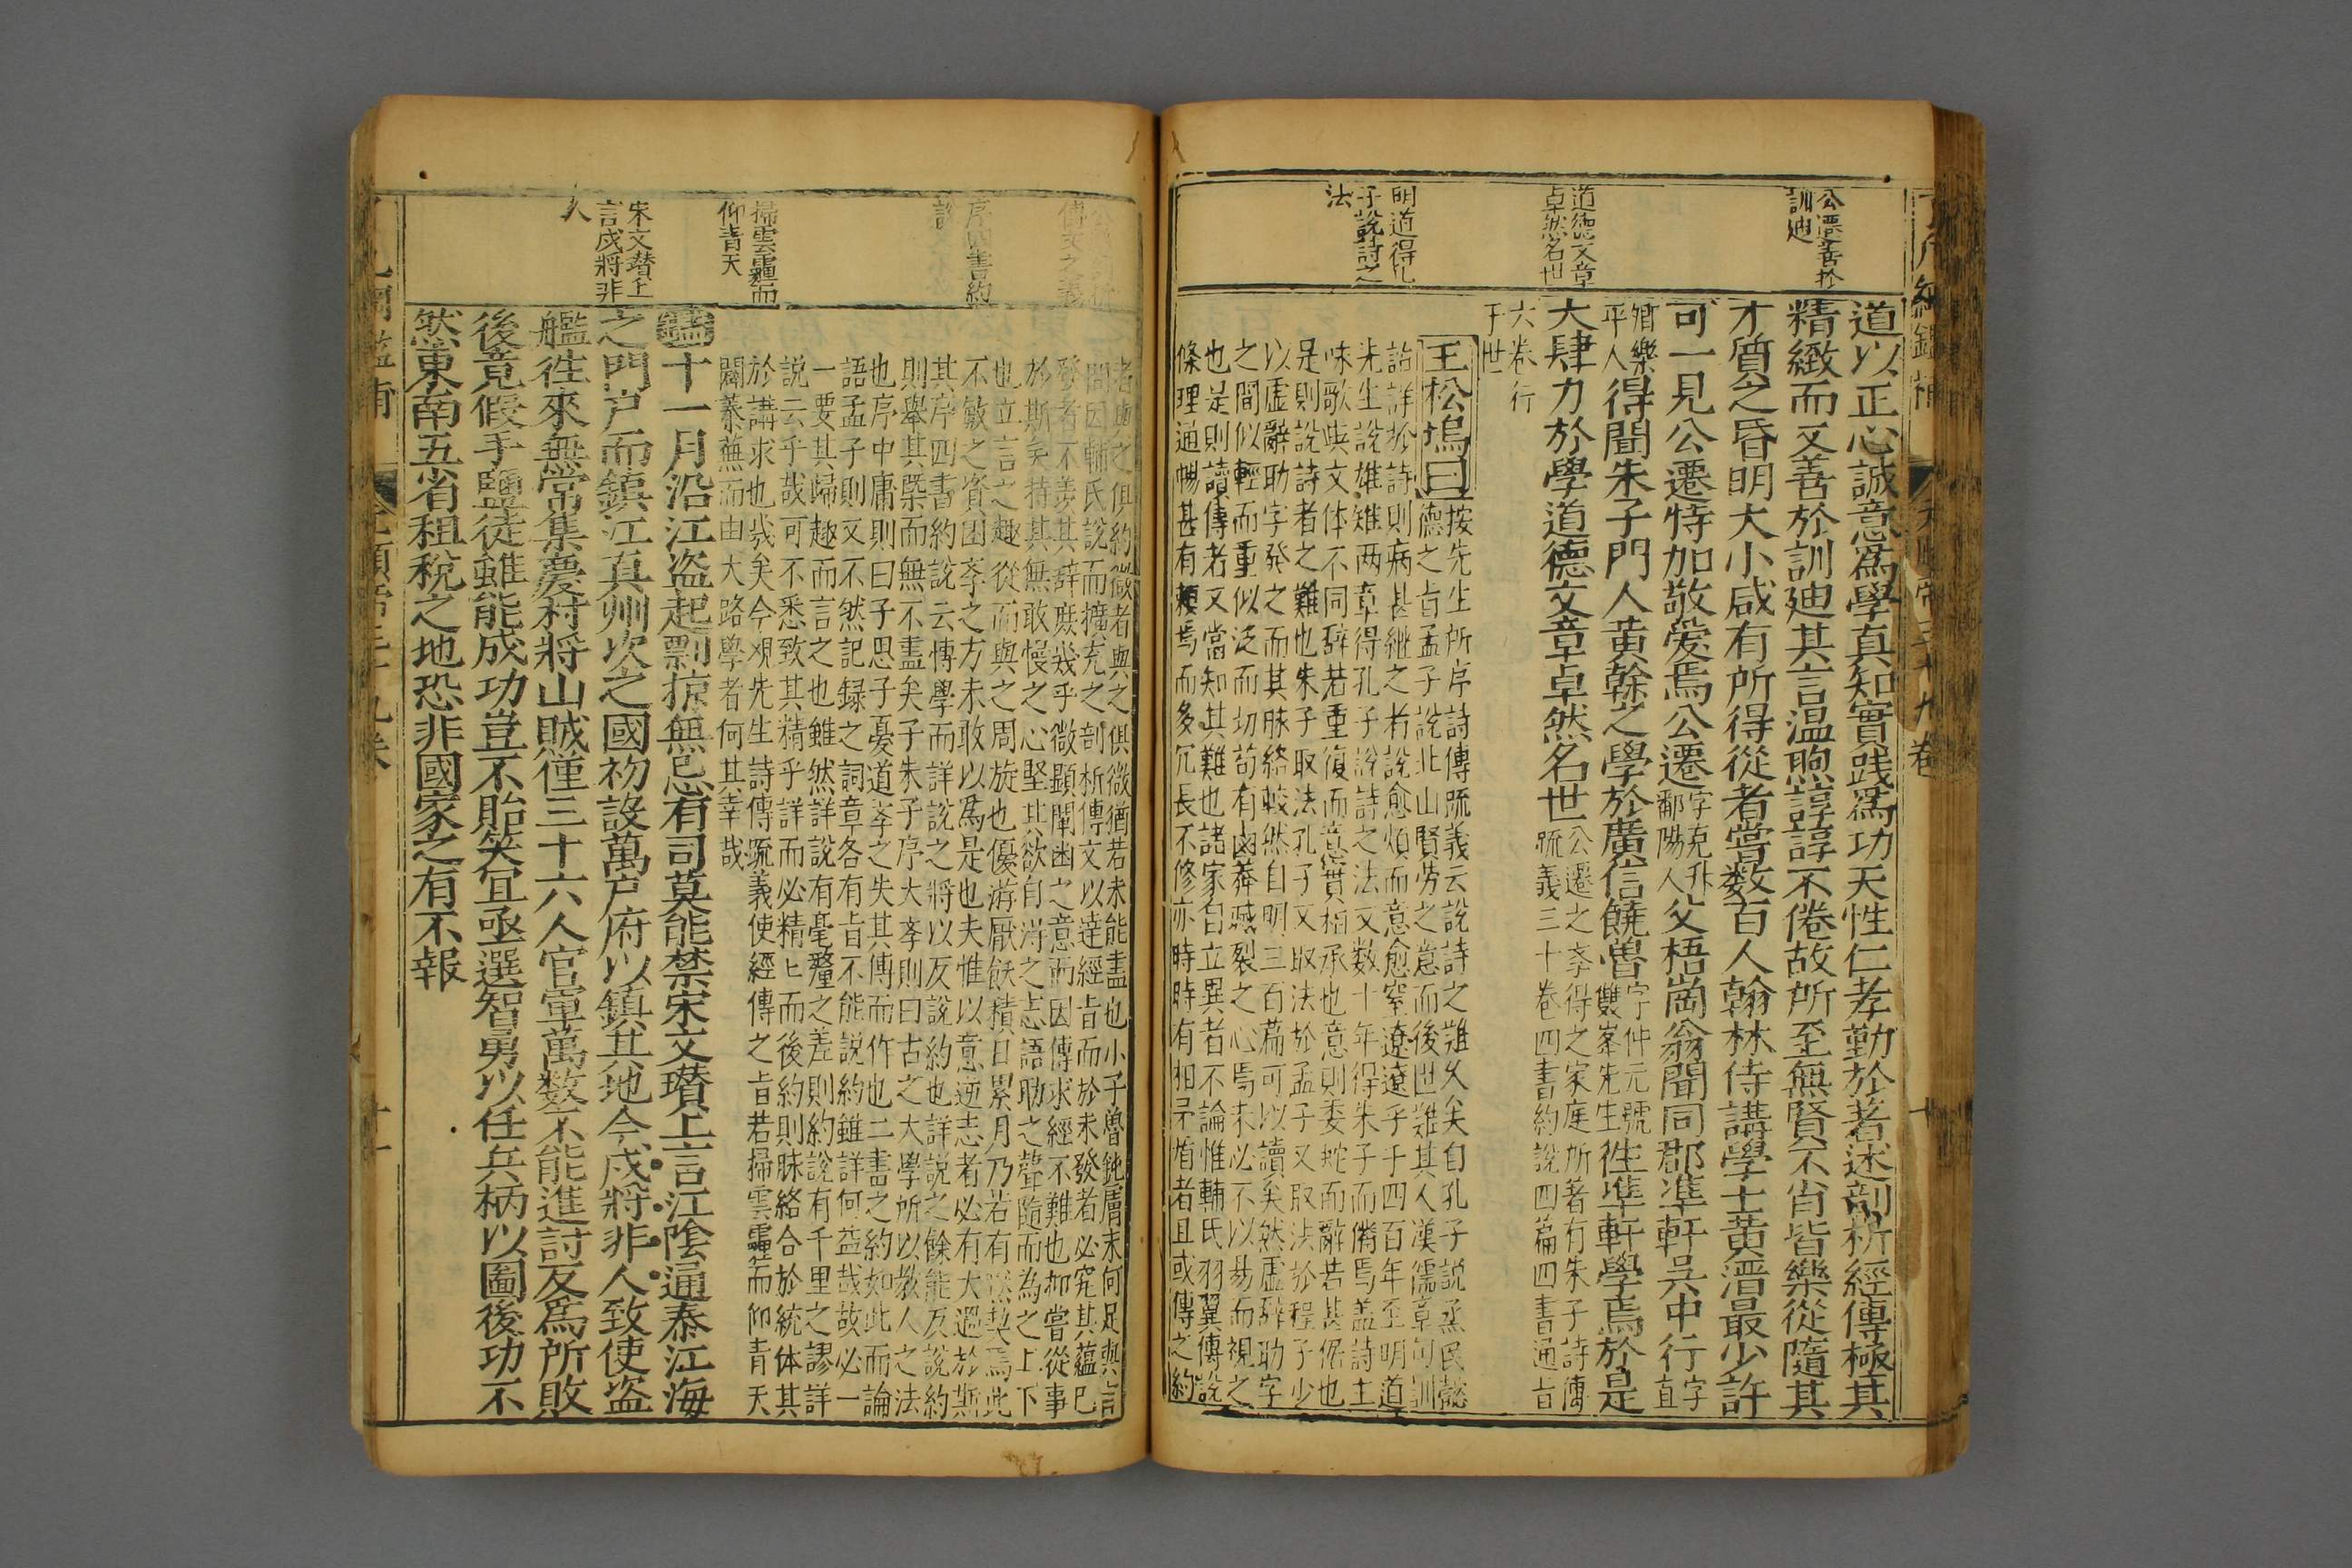 公遷善於
訓迪
道德文章
卓然名世
明道得孔
子說詩之
法
道以正心誠意爲學真知實踐爲功天性仁孝勤於著述剖析經傳極其
精緻而又善於訓迪其言溫煦諄諄不倦故所至無賢不肖皆樂從隨其
才質之昏明大小咸有所得從者嘗数百人翰林侍講學士黄溍最少許
可一見公遷特加敬愛焉公遷
字克升
鄱陽人
父梧崗翁聞同郡準軒吳中行
字
直
平人
得聞朱子門人黄榦之學於廣信饒魯
字仲元號
雙峯先生
徃準軒學焉於是
大肆力於學道德文章卓然名世
公遷之孝得之家庭所著有朱子詩傳
䟽義三十卷四書約說四篇四書通旨
六卷行
于世
王松塢曰
按先生所序詩傳䟽義云說詩之難久矣自孔子說烝民懿
德之旨孟子說北山賢劳之意而後世難其人漢儒章句訓
詁詳於詩則病甚継之者說愈煩而意愈窒遼遼乎千四百年至明道
先生說雄雉两章得孔子說詩之法又数十年得朱子而俻焉盖詩主
咏歌與文体不同辞若重復而意實相承也意則委蛇而辭若甚俗也
是則說詩者之難也朱子取法孔子又取法於孟子又取法於程子少
以虚辭助字發之而其脉絡較然自明三百篇可以讀矣然虚辞助字
之間似輕而重似泛而切苟有鹵莽滅裂之心焉未必不以易而視之
也是則讀傳者又當知其難也諸家名立異者不論惟輔氏羽翼傳說
條理通暢甚有頼焉而多冗長不修亦時時有相矛盾者且或傳之約
者歯之俱約微者與之俱微猶若未能盡也小子魯鈍膚末何足與言
間因輔氏說而擴充之剖析傳文以達經旨而於未發者必究其蘊已
發者不羡其辞庶幾乎微顕闡幽之意而因傳求經不難也抑嘗從事
於斯矣持其無敢慢之心堅其欲自淂之志語助之聲隨而為之上下
也立言之趣從而與之周旋也優游厭飫積日累月乃若有默契焉此
不敏之資困孝之方未敢以爲是也夫惟以意逆志者必有大過於斯
其序四書約說云傳學而詳說之將以反說約也詳說之餘能反說約
則舉其槩而無不盡矣子朱子序大孝則曰古之大學所以教人之法
也序中庸則曰子思子憂道孝之失其傳而作也二書之約如此而論
語孟子則又不然記録之詞章各有旨不能說約雖詳何益哉故必一
一要其歸趣而言之也雖然詳說有毫釐之差則約說有千里之謬詳
說云乎哉可不悉致其精乎詳而必精匕而後約則脉絡合於統体其
於講求也㡬矣今观先生詩傳䟽義使經傳之旨若掃雲霾而仰青天
闢蓁蕪而由大路學者何其幸哉
序四書約
說
掃雲霾而
仰青天
宋文瓉上
言戍將非
人
十一月沿江盗起剽掠無忌有司莫能禁宋文瓉上言江陰通泰江海
之門户而鎮江真州次之國初設萬户府以鎮其地今戍將非人致使盗
艦徃來無常集慶村將山賊僅三十六人官軍萬数不能進討反爲所敗
後竟假手鹽徒雖能成功豈不貽笑宜亟選智勇以任兵柄以圖後功不
然東南五省租稅之地恐非國家之有不報